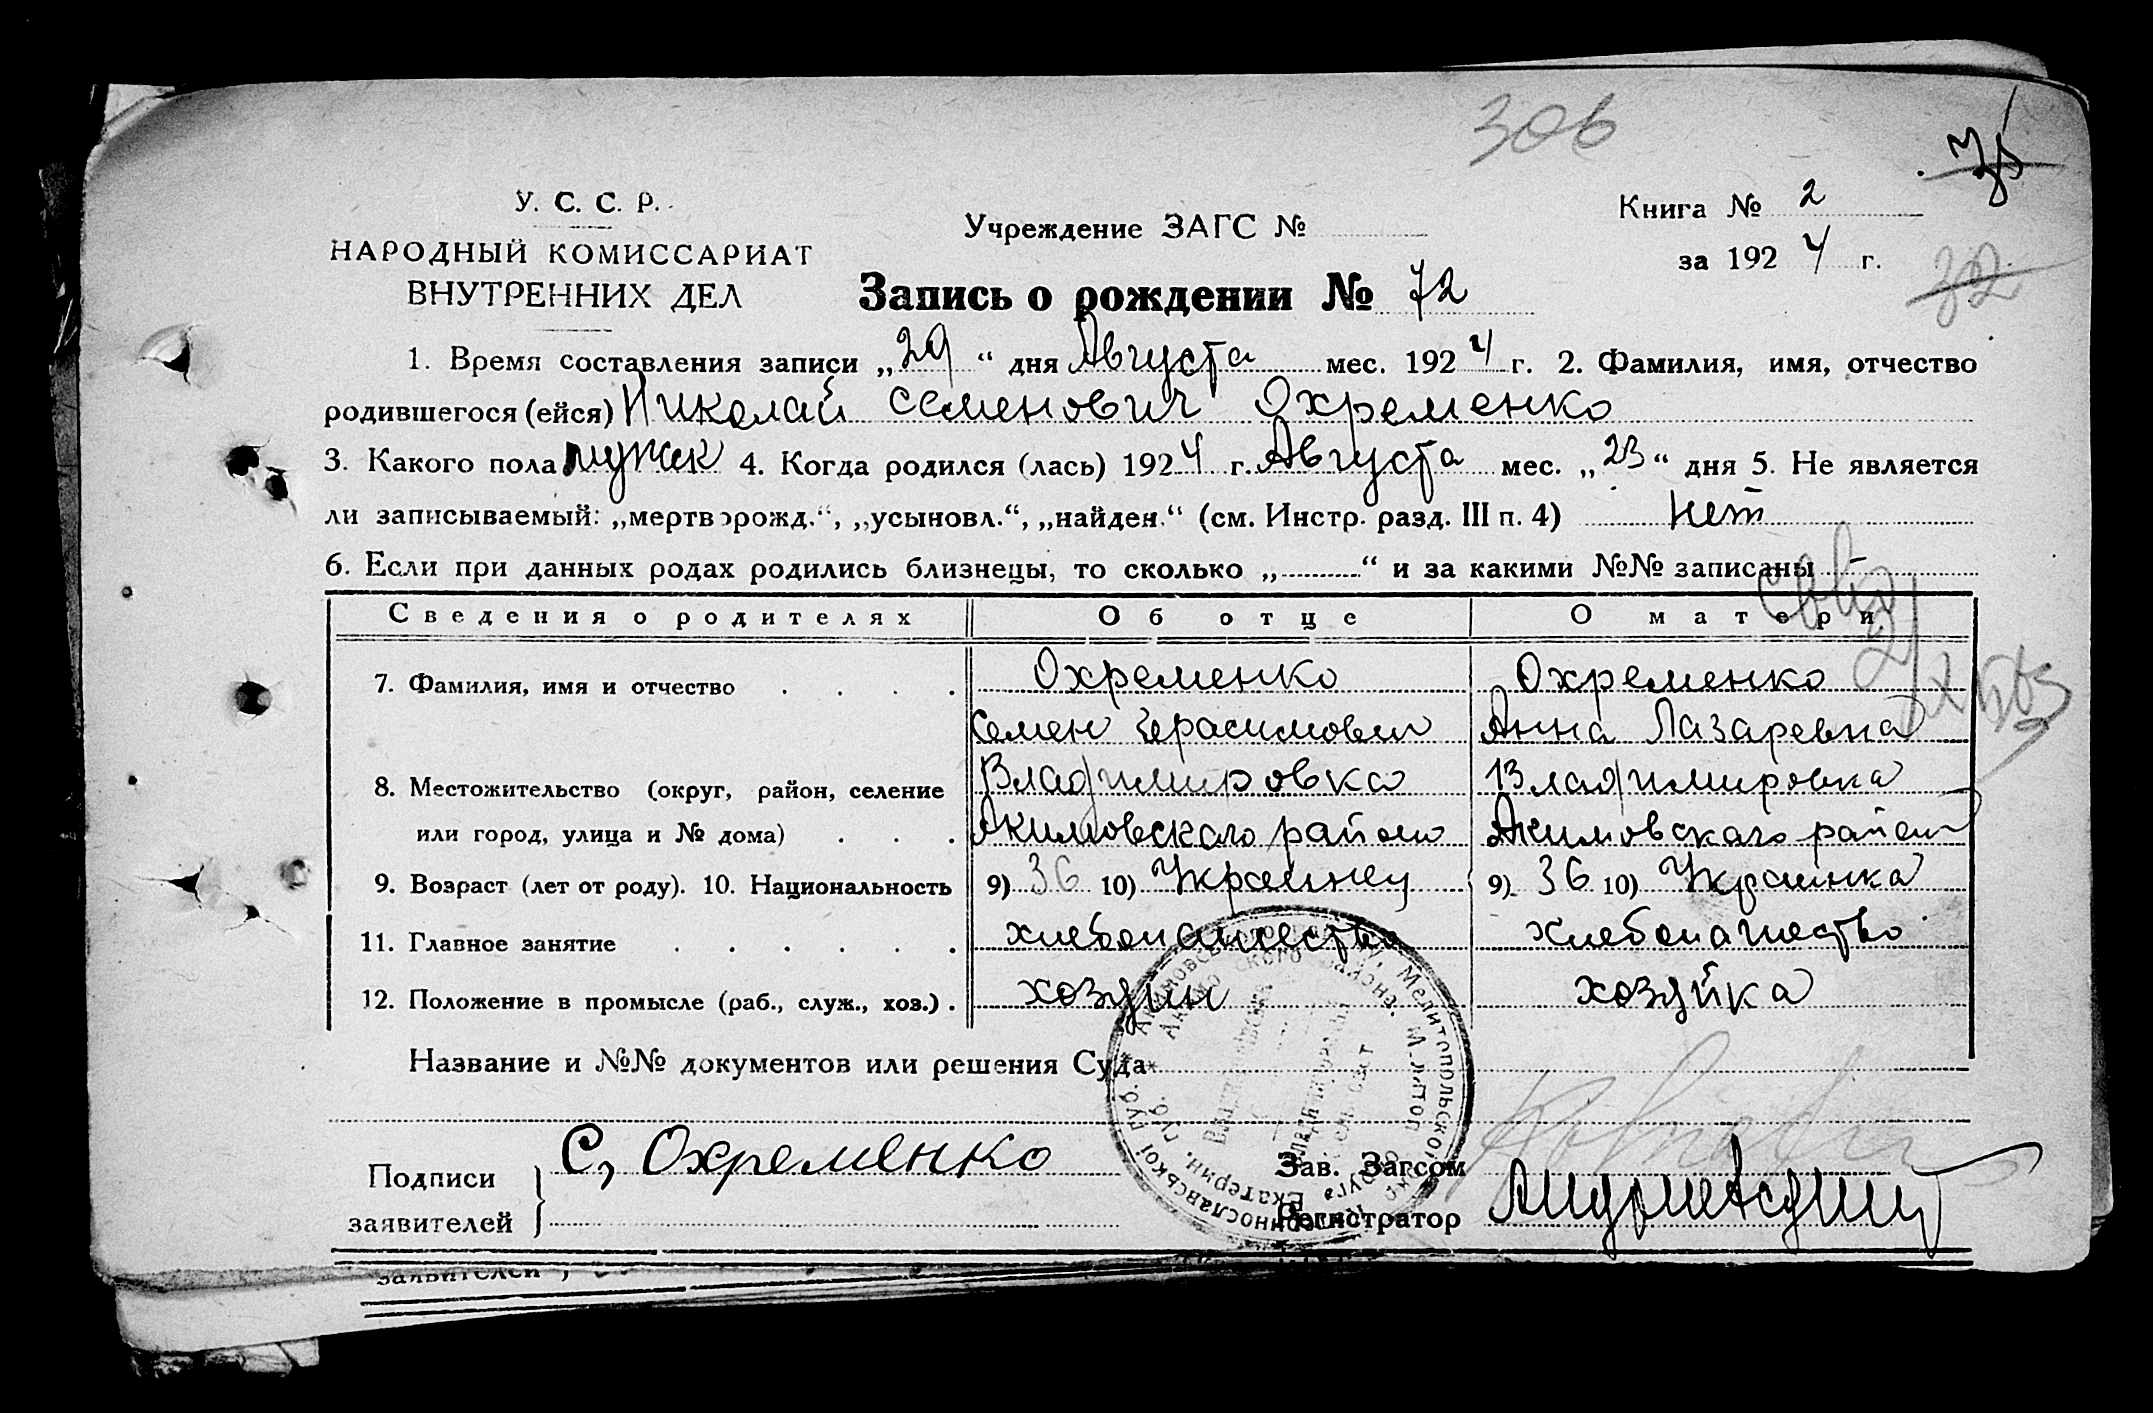 306
У. С. С. Р.
НАРОДНЫЙ КОМИССАРИАТ
ВНУТРЕННИХ ДЕЛ
Учреждение ЗАГС №
Книга № 2
за 1924 г.
32
Запись о рождении № 72
1. Время составления записи „29“ дня Августа мес. 1924 г. 2. Фамилия, имя, отчество
родившегося (ейся) Николай Семенович Охременко
3. Какого пола мужск 4. Когда родился (лась) 1924 г. Августа мес. „23“ дня 5. Не является
ли записываемый: „мертворожд.“, „усыновл.“, „найден.“ (см. Инстр. разд. III п. 4) нет
6. Если при данных родах родились близнецы, то сколько „..........“ и за какими №№ записаны –
Сведения о родителях Об отце О матери
7. Фамилия, имя и отчество Охременко Охременко
Семен Герасимович Анна Лазаревна
8. Местожительство (округ, район, селение Владимировка Владимировка
или город, улица и № дома) Акимовского района Акимовского района
9. Возраст (лет от роду). 10. Национальность 9) 36 10) Украинец 9) 36 10) Украинка
11. Главное занятие хлебопашество хлебопашество
12. Положение в промысле (раб., служ., хоз.) хозяин хозяйка
Название и №№ документов или решения Суда
Подписи заявителей С, Охременко
Зав. Загсом
Регистратор
заявителей